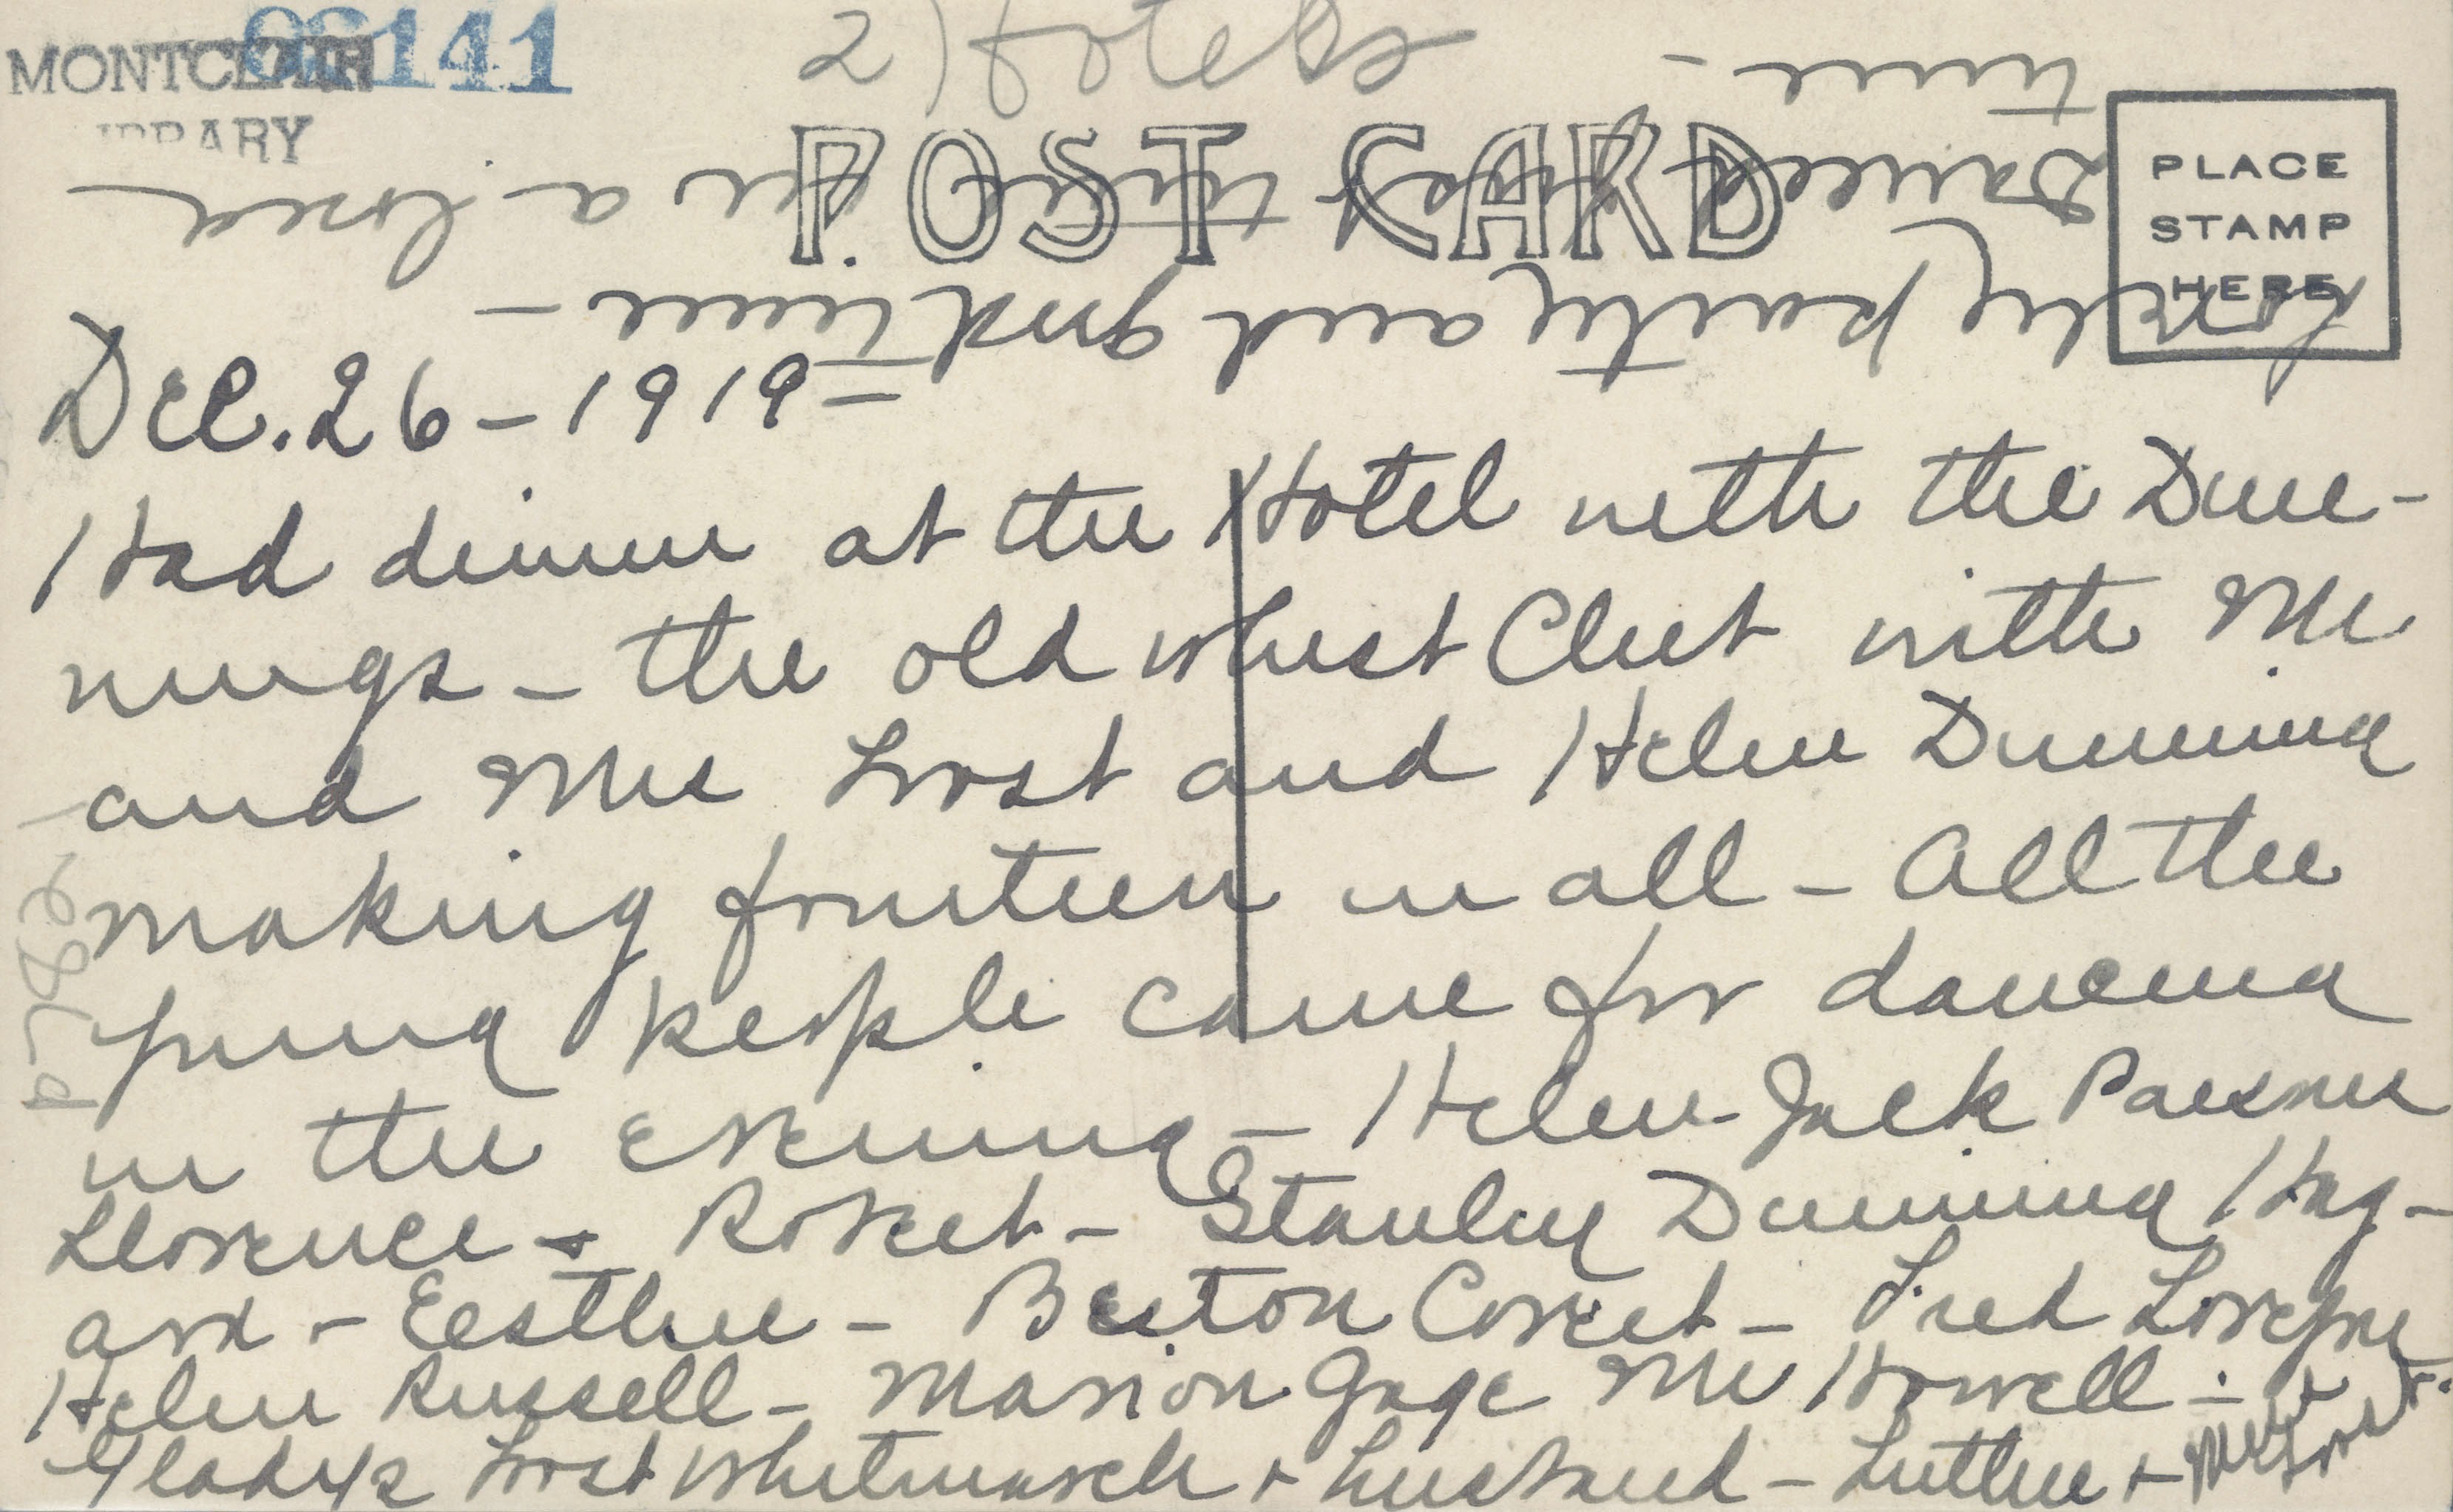 06141
MONTCLAIR
LIBRARY
2) Hotels
POST CARD
PLACE
STAMP
HERE
Dec. 26 - 1919 =
Had dinner at the Hotel with the Dun-
nings - the old Whist Club with Mr
and Mrs Frost and Helen Dunning
making fourteen in all - All the
young people came for dancing
in the evening - Helen - Jack Parsons
Florence + Robert - Stanley Dunning Hag-
ard - Eesther - Beston Covert - Fred Lovejoy
Helen Russell - Marion Gage Mr Howell -
Gladys Frost Whitmarsh + husband - Luther +
Lovely party and good time -
Danced four times for a
time -